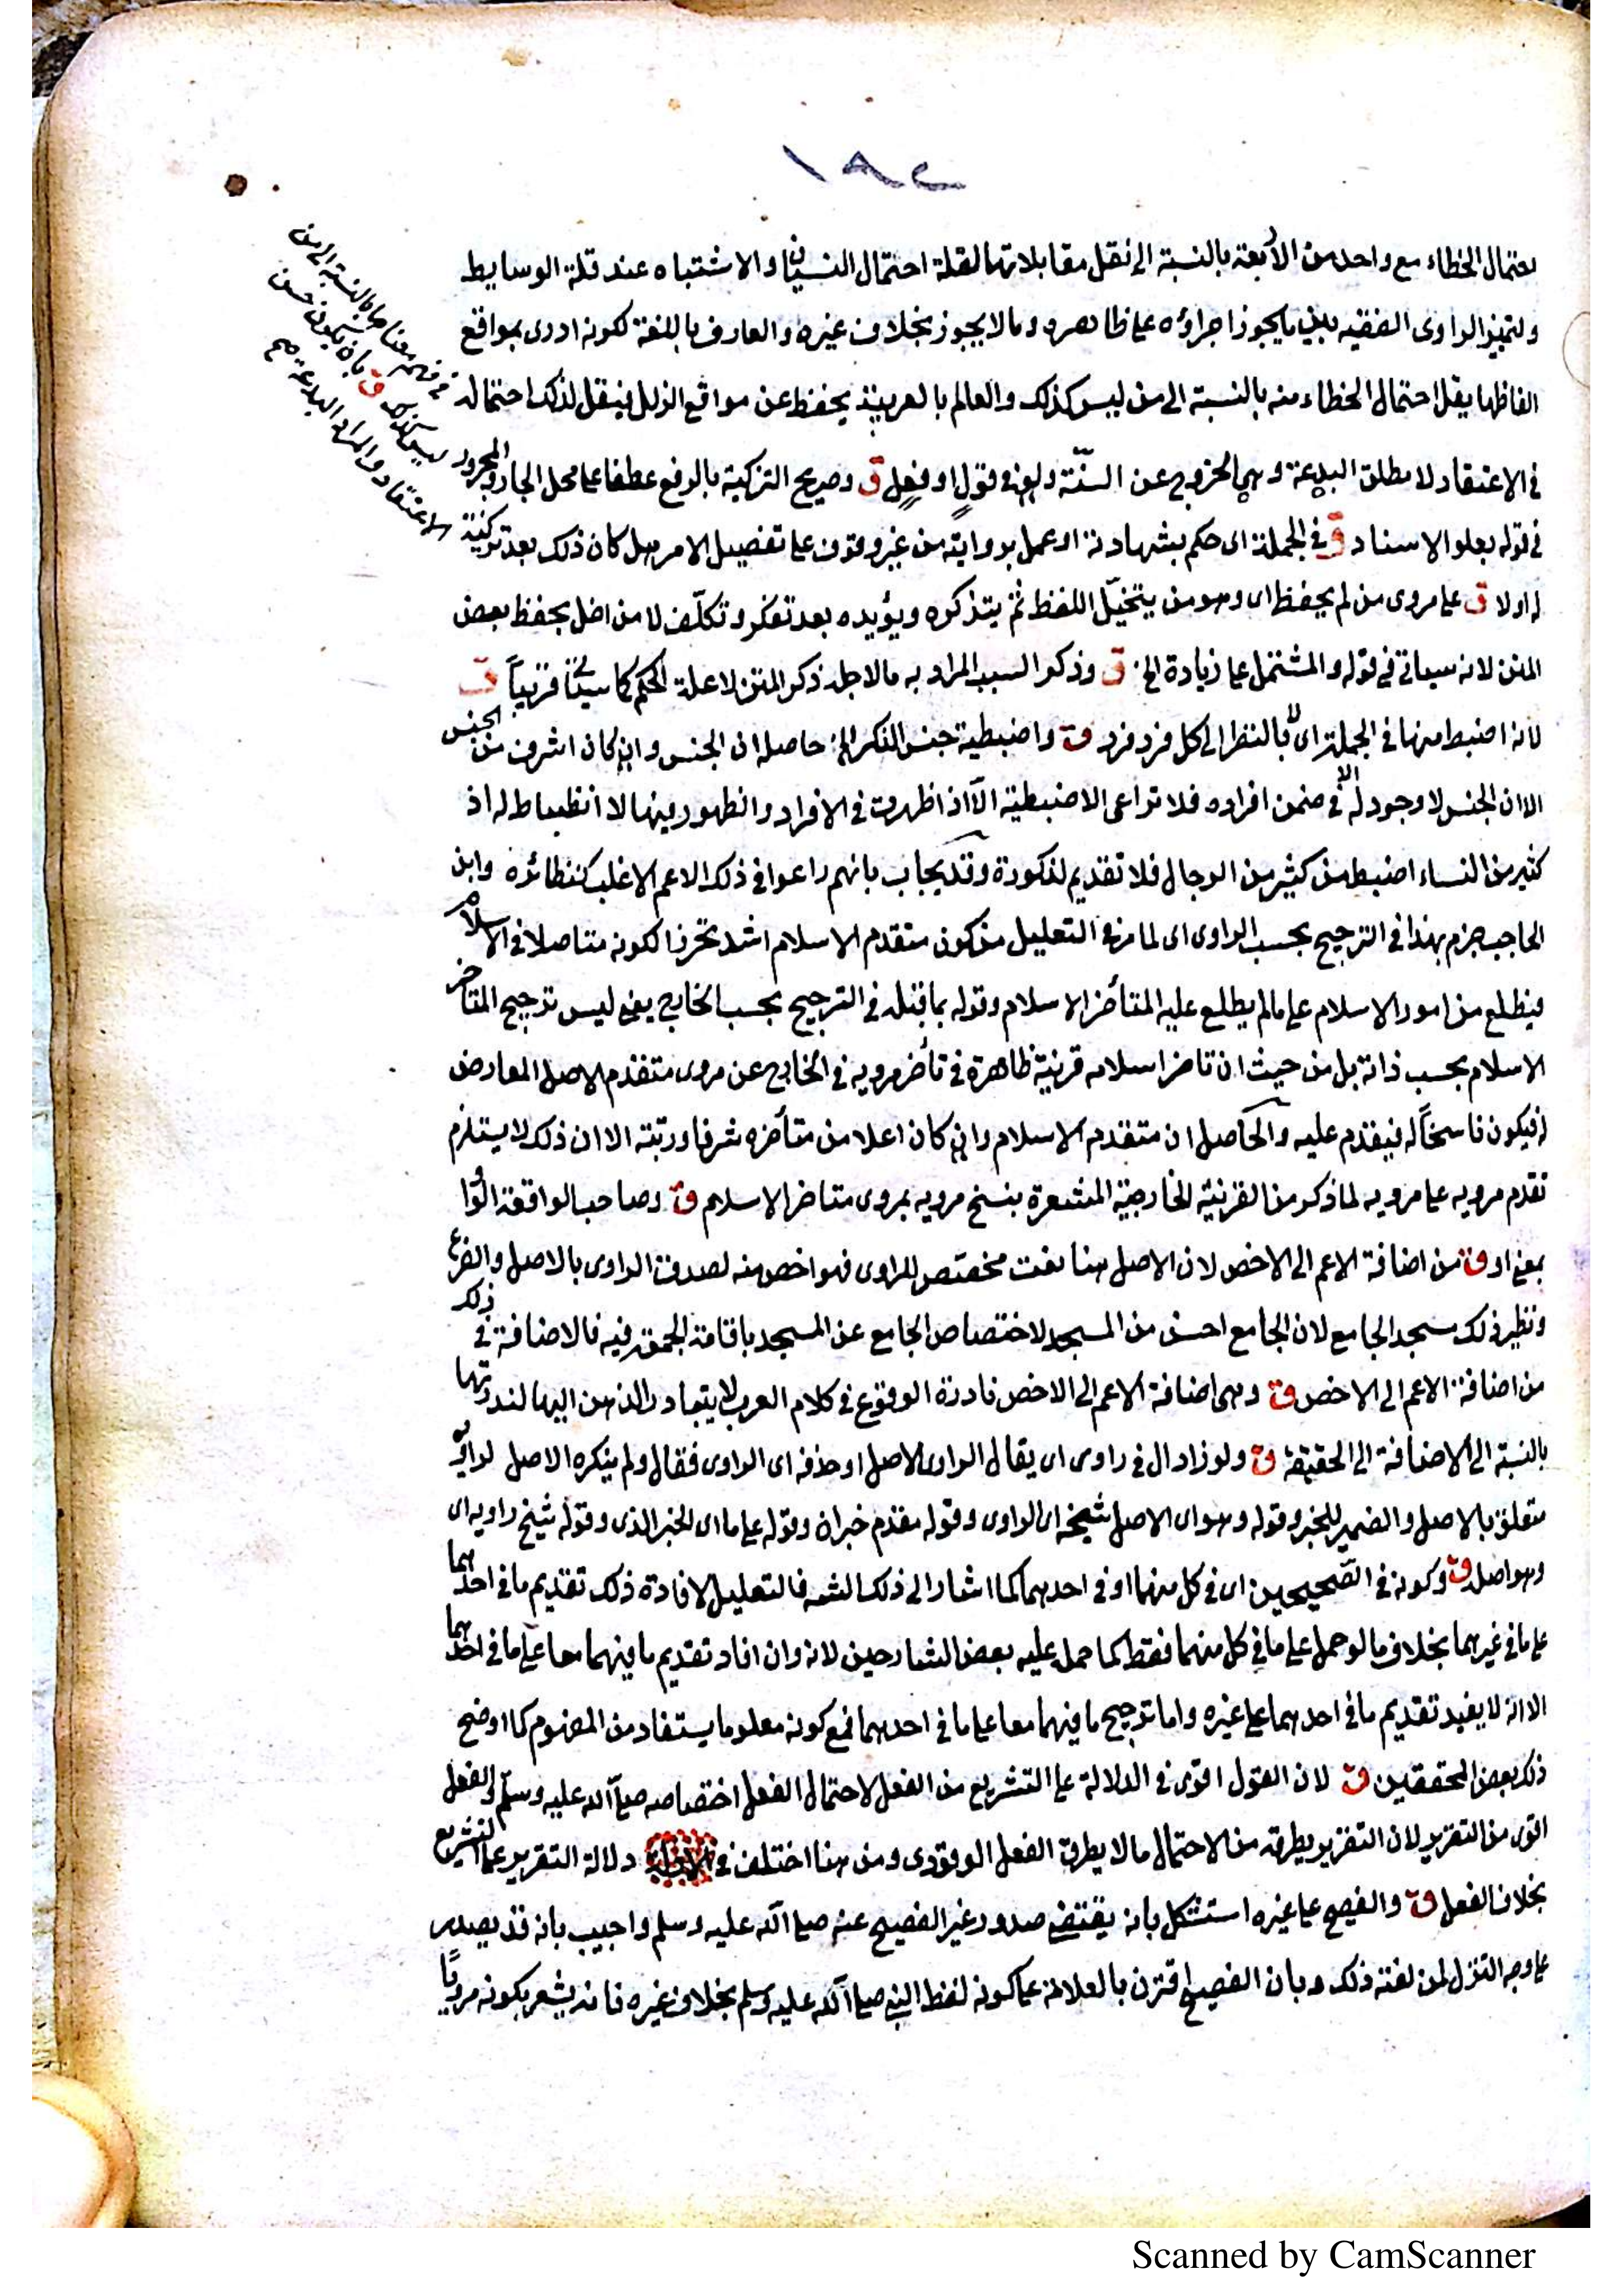 ١٨٢
احتمال الخطاء مع واحد من الأربعة بالنسبة الى نقل مقابلاتها لقلة احتمال النسيان والاشتباه عند قلة الوسايط
ولتميز الراوى الفقيه بين ما يجوز اجراؤه على ظاهره وما لا يجوز بخلاف غيره والعارف باللغة لكونه ادرى بمواقع
الفاظها يقل احتمال الخطاء منه بالنسبة الى من ليس كذلك والعالم بالعربية يحفظ عن مواقع الزلل فيقل لذلك احتماله
فى فهم معناها بالنسبة الى من
ليس كذلك ق بان يكون حسن
الاعتقاد والمراد البدعة صح
فى الاعتقاد لا مطلق البدعة وهى الخروج عن السنّة ولو فى قولٍ او فعلٍ ق وصريح التزكية بالرفع عطفا على محل الجار والمجرور
فى قوله بعلو الاسناد ق فى الجملة اى حكم بشهادته او عمل بروايته من غير وقوف على تفصيل الامر هل كان ذلك بعد تزكية
له اولا ق على مروى من لم يحفظ اى وهو من يتخيّل اللفظ ثم يتذكره ويؤيده بعد تفكر وتكلّف لا من اخل بحفظ بعض
المتن لانه سياتى فى قوله والمشتمل على زيادة الخ ق وذكر السبب المراد به ما لاجله ذكر المتن لا علة الحكم كما سيجئ قريباً ق
لانه اضبط منها فى الجملة اى لا بالنظر الى كل فرد فرد ق واضبطية جنس الذكر الخ حاصله ان الجنس وان كان اشرف من الجنس
الا ان الجنس لا وجود له الا فى ضمن افراده فلا تراعى الاضبطية الّا اذا ظهرت فى الافراد والظهور فيها لا انظباط له اذ
كثير من النساء اضبط من كثير من الرجال فلا تقديم لذكورة وقد يجاب بانهم راعوا فى ذلك الاعم الاغلب كنظائره وابن
الحاجب جزم بهذا فى الترجيح بحسب الراوى اى لما مر فى التعليل من كون متقدم الاسلام اشد تحرزا لكونه متاصلا فى الاسلام
فيطلع من امور الاسلام على ما لم يطلع عليه المتأخر الاسلام وقوله بما قبله فى الترجيح بحسب الخارج يعنى ليس ترجيح المتاخر
الاسلام بحسب ذاته بل من حيث ان تاخر اسلامه قرينة ظاهرة فى تأخر مرويه فى الخارج عن مروى متقدم الاصل المعارض
له فيكون ناسخاً له فيقدم عليه والحاصل ان متقدم الاسلام وان كان اعلا من متأخره شرفا ورتبة الا ان ذلك لا يستلزم
تقدم مرويه على مرويه لما ذكر من القرينة الخارجية المشعرة بنسخ مرويه بمروى متاخر الاسلام ق وصاحب الواقعة الواو
بمعنى او ق من اضافة الاعم الى الاخص لان الاصل هنا نعت مختص للراوى فهو اخص منه لصدق الراوى بالاصل والفرع
ونظير ذلك مسجد الجامع لان الجامع اخص من المسجد لاختصاص الجامع عن المسجد باقامة الجمعة فيه فالاضافة فى ذلك
من اضافة الاعم الى الاخص ق وهى اضافة الاعم الى الاخص نادرة الوقوع فى كلام العرب لا يتبادر الذهن اليها لندرتها
بالنسبة الى الاضافة الى الحقيقة ق ولو زاد ال فى راوى اى يقال الراوى الاصل او حذفه اى الراوى فقال ولم ينكره الاصل لراويه
متعلق بالاصل والضمير للخبر وقوله وهو اى الاصل شيخه اى الراوى وقوله مقدم خبر ان وقوله على ما اى الخبر الذى وقوله شيخ راويه اى
وهو اصله ق وكونه فى الصّحيحين اى فى كل منهما او فى احدهما كما اشار الى ذلك الشه فالتعليل لافادة ذلك تقديم ما فى احدهما
على ما فى غيرهما بخلاف ما لو حمل على ما فى كل منهما فقط كما حمل عليه بعض الشارحين لانه وان افاد تقديم ما فيهما معا على ما فى احدهما
الا انه لا يفيد تقديم ما فى احدهما على غيره واما ترجيح ما فيهما معا على ما فى احدهما فمع كونه معلوما يستفاد من المفهوم كما اوضح
ذلك بعض المحققين ق لان القول اقوى فى الدلالة على التشريع من الفعل لاحتمال الفعل اختصاصه صلى الله عليه وسلم والفعل
اقوى من التقرير لان التقرير يطرقه من الاحتمال ما لا يطرق الفعل الوقودى ومن هنا اختلف فى دلالة التقرير على التشريع
بخلاف الفعل ق والفصيح على غيره استشكل بانه يقتضى صدور غير الفصيح عنه صلى الله عليه وسلم واجيب بانه قد يصدر
على وجه التنزل لمن لغته ذلك وبان الفصيح اقترن بالعلامة على كونه لفظ النبى صلى الله عليه وسلم بخلاف غيره فانه يشعر بكونه مرويًّا
Scanned by CamScanner